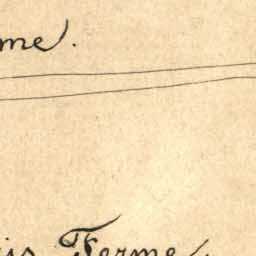 me.
is Ferme,